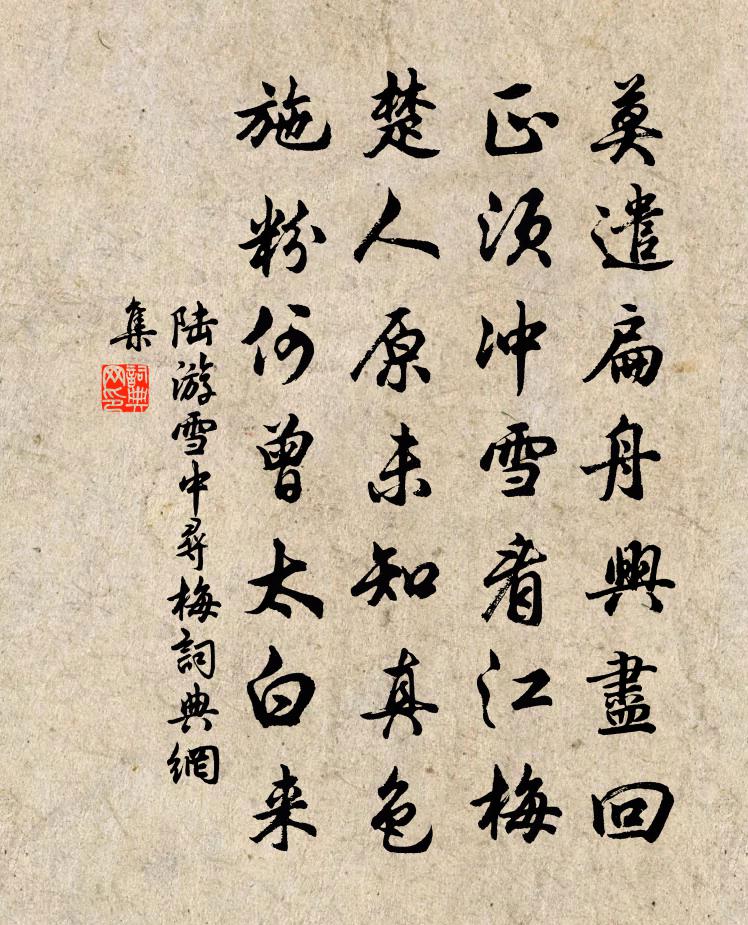 莫遣扁舟興盡回
正须冲雪看江梅
楚人原未知真色
施粉何曾太白来
陆游雪中尋梅詞典網
集
詞典网印